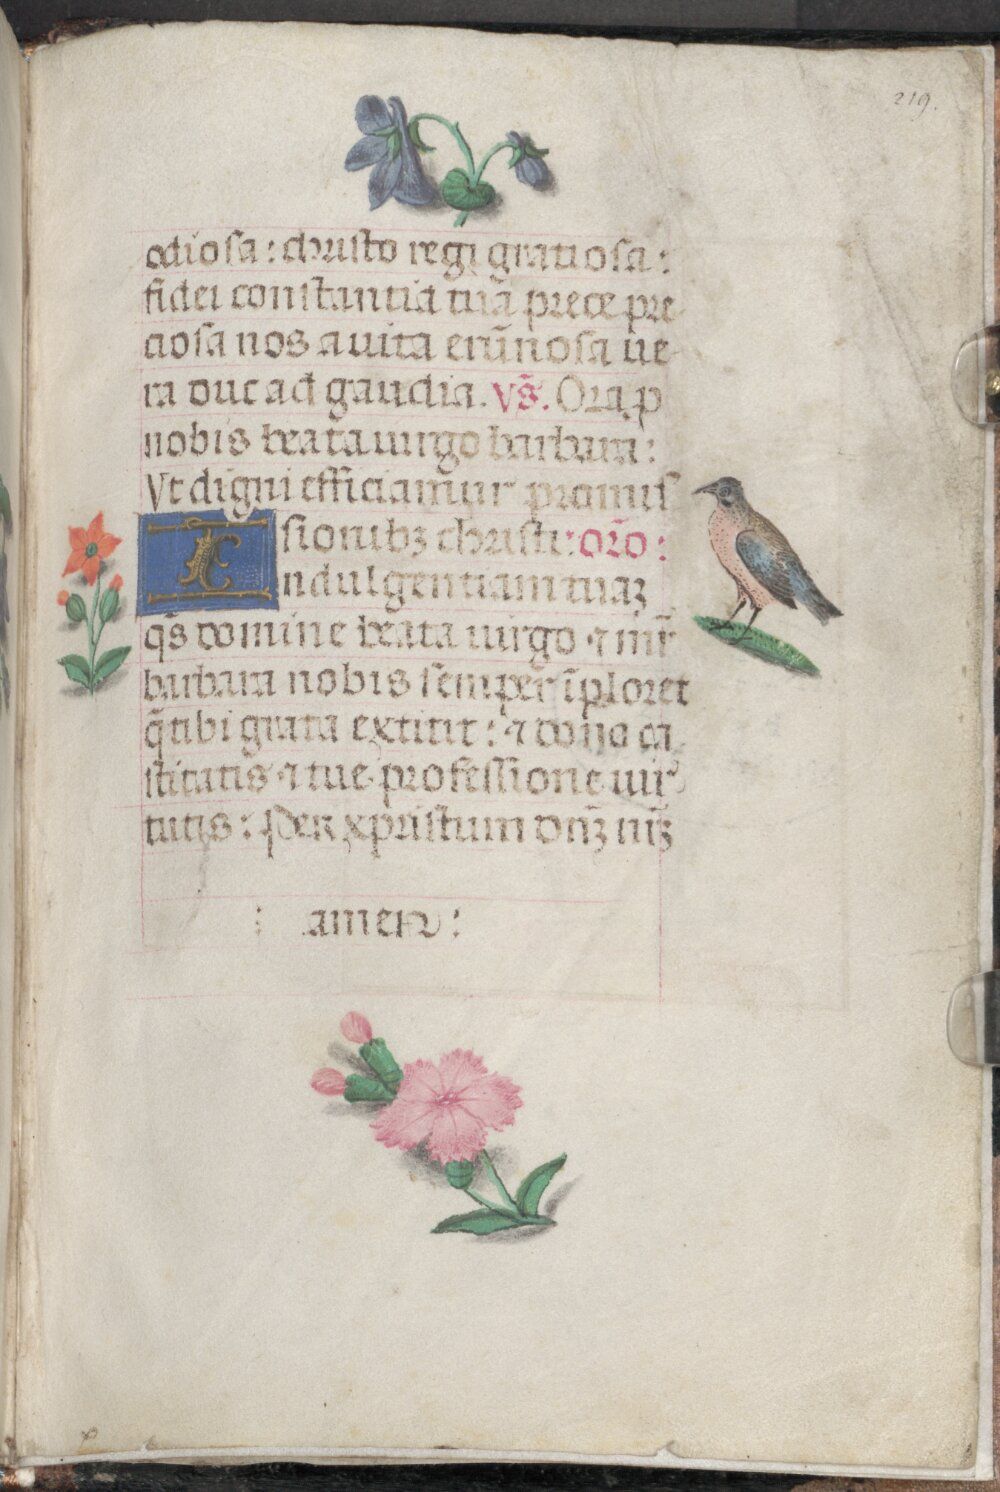 219.
odiosa : christo regi gratiosa :
fidei constantia tuā prece pre
ciosa nos a uita erūnosa ue
ra duc ad gaudia. Vs̄. Ora p
nobis beata uirgo barbara :
Vt digni efficiamur promis
sionibꝫ christi : orō :
Indulgentiam tuaꝫ
qs̄ domine beata uirgo ⁊ mr̄
barbara nobis sēmper īploret
q̄ tibi grata extitit : ⁊
stitatis ⁊ tue professione uir
tutis : xpristum dn̄ꝫ nr̄ꝫ
: amen :